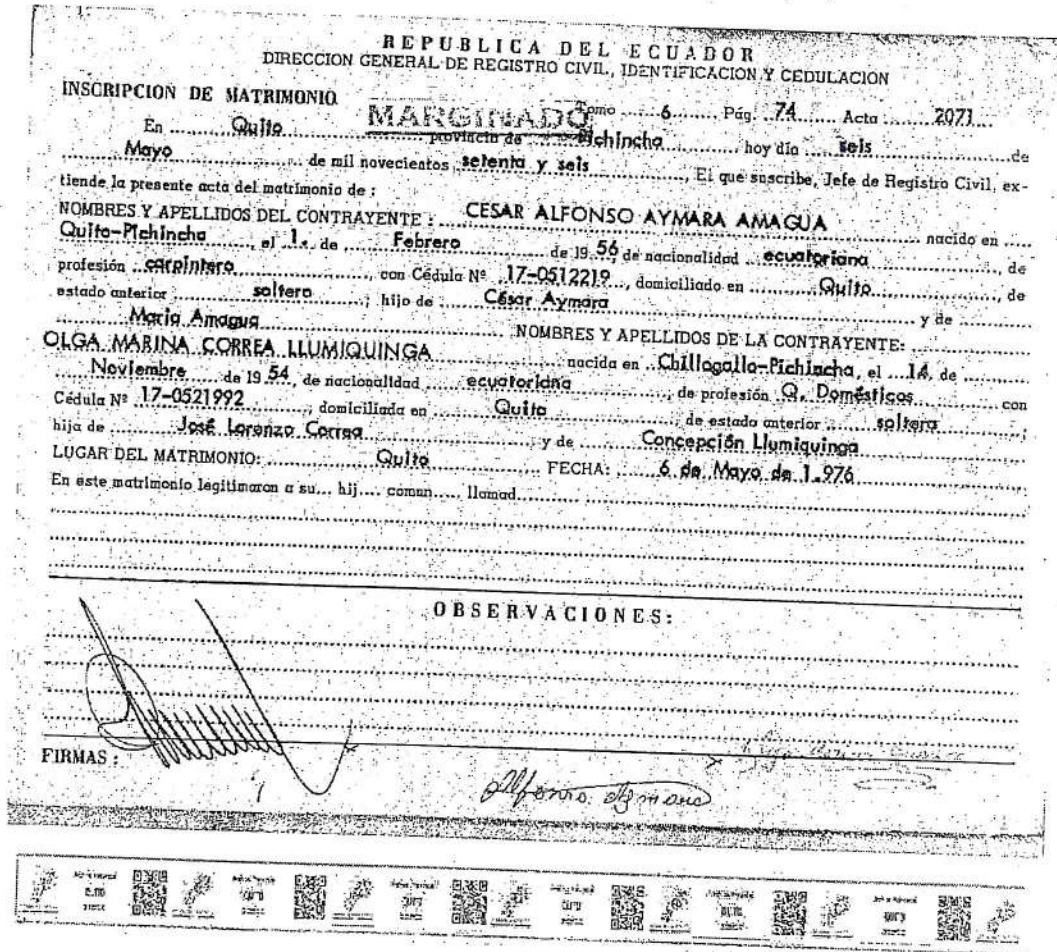 REPUBLICA DEL ECUADOR
DIRECCION GENERAL DE REGISTRO CIVIL, IDENTIFICACION Y CEDULACION
INSCRIPCION DE MATRIMONIO
MARGINADO
Tomo 6 Pág. 74 Acta 2071
En Quito provincia de Pichincha hoy día seis de
Mayo de mil novecientos setenta y seis El que suscribe, Jefe de Registro Civil, ex-
tiende la presente acta del matrimonio de :
NOMBRES Y APELLIDOS DEL CONTRAYENTE : CESAR ALFONSO AYMARA AMAGUA nacido en
Quito-Pichincha, el 1. de Febrero de 19 56 de nacionalidad ecuatoriana de
profesión carpintero, con Cédula Nº 17-0512219, domiciliado en Quito, de
estado anterior soltero ; hijo de César Aymara y de
María Amagua NOMBRES Y APELLIDOS DE LA CONTRAYENTE:
OLGA MARINA CORREA LLUMIQUINGA nacida en Chillogallo-Pichincha, el 14, de
Noviembre de 19 54, de nacionalidad ecuatoriana, de profesión Q. Domésticos con
Cédula Nº 17-0521992, domiciliada en Quito, de estado anterior soltera ;
hija de José Lorenzo Correa y de Concepción Llumiquinga
LUGAR DEL MATRIMONIO: Quito FECHA: 6 de Mayo de 1.976
En este matrimonio legitimaron a su... hij.... comun..... llamad.....
OBSERVACIONES:
FIRMAS :
Alfonso Aymara